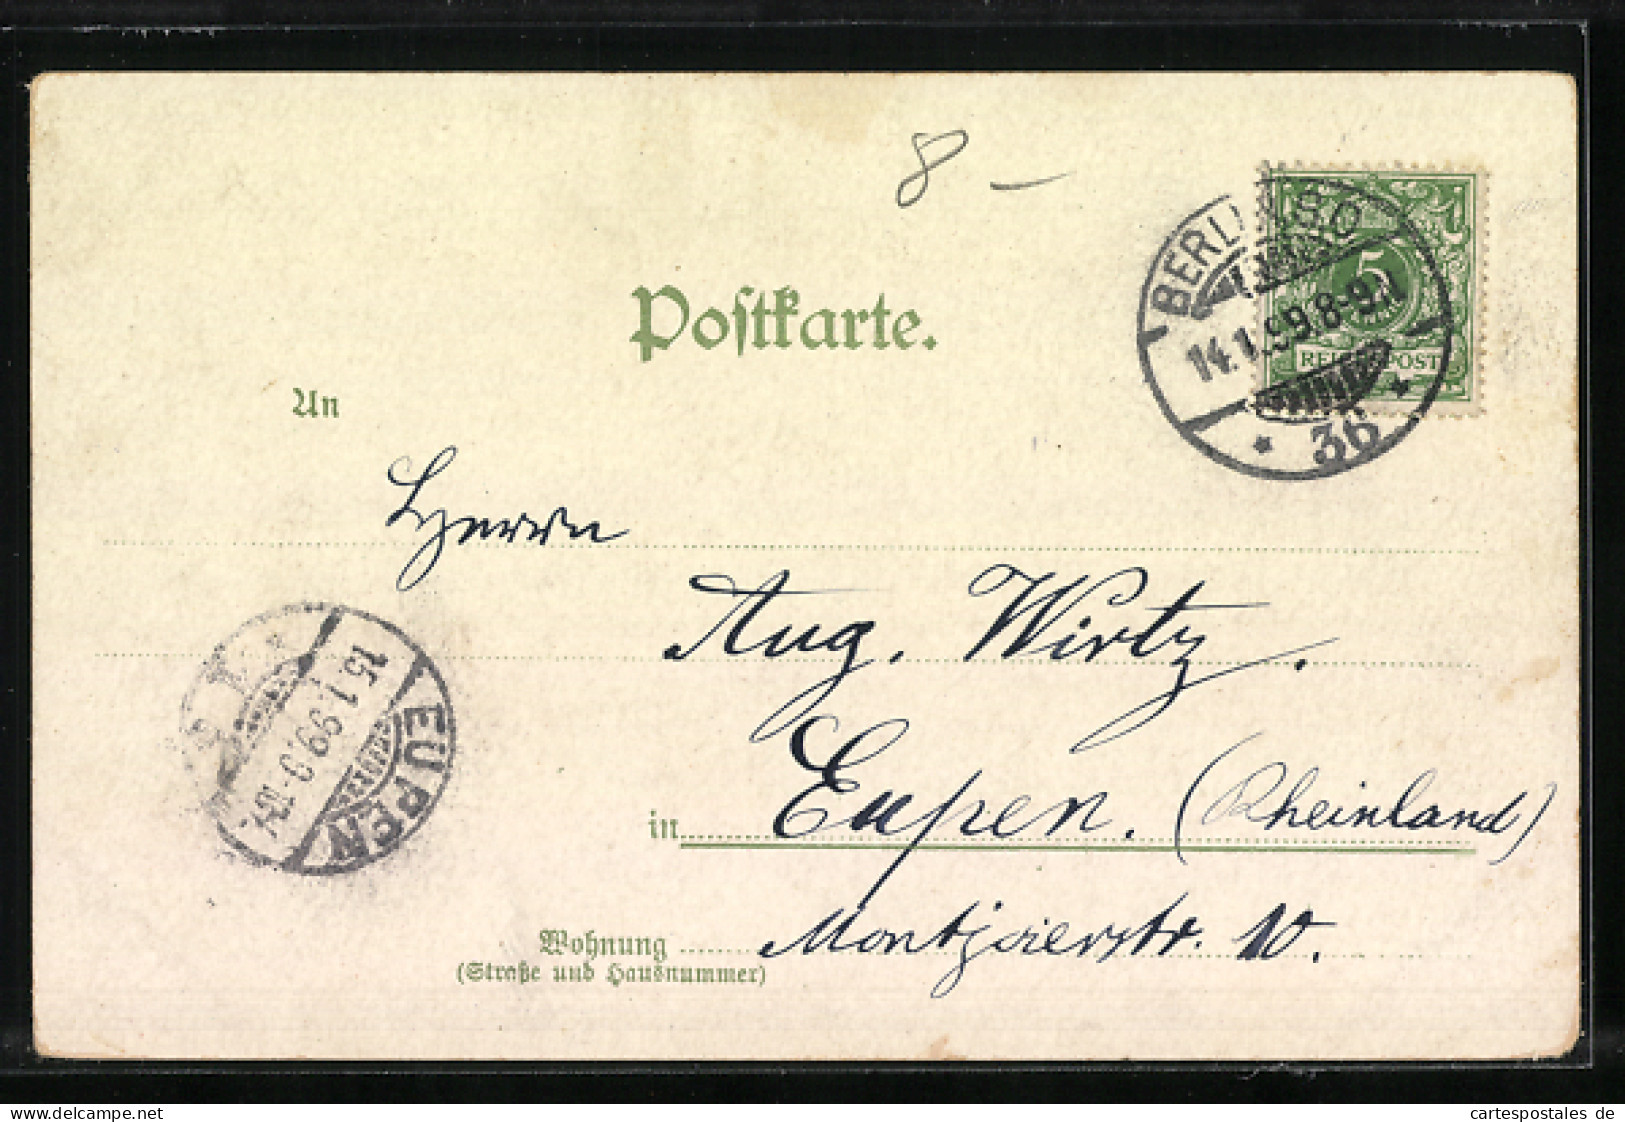 8 –
BERLIN S.O.
14.1.99.8-9N
* 36 *
5
REICHSPOST
Postkarte.
An
Herrn
Aug. Wirtz.
15.1.99.9-10V.
EUPEN
in Eupen. (Rheinland)
Wohnung Montjoierstr. 10.
(Straße und Hausnummer)
www.delcampe.net
cartespostales de